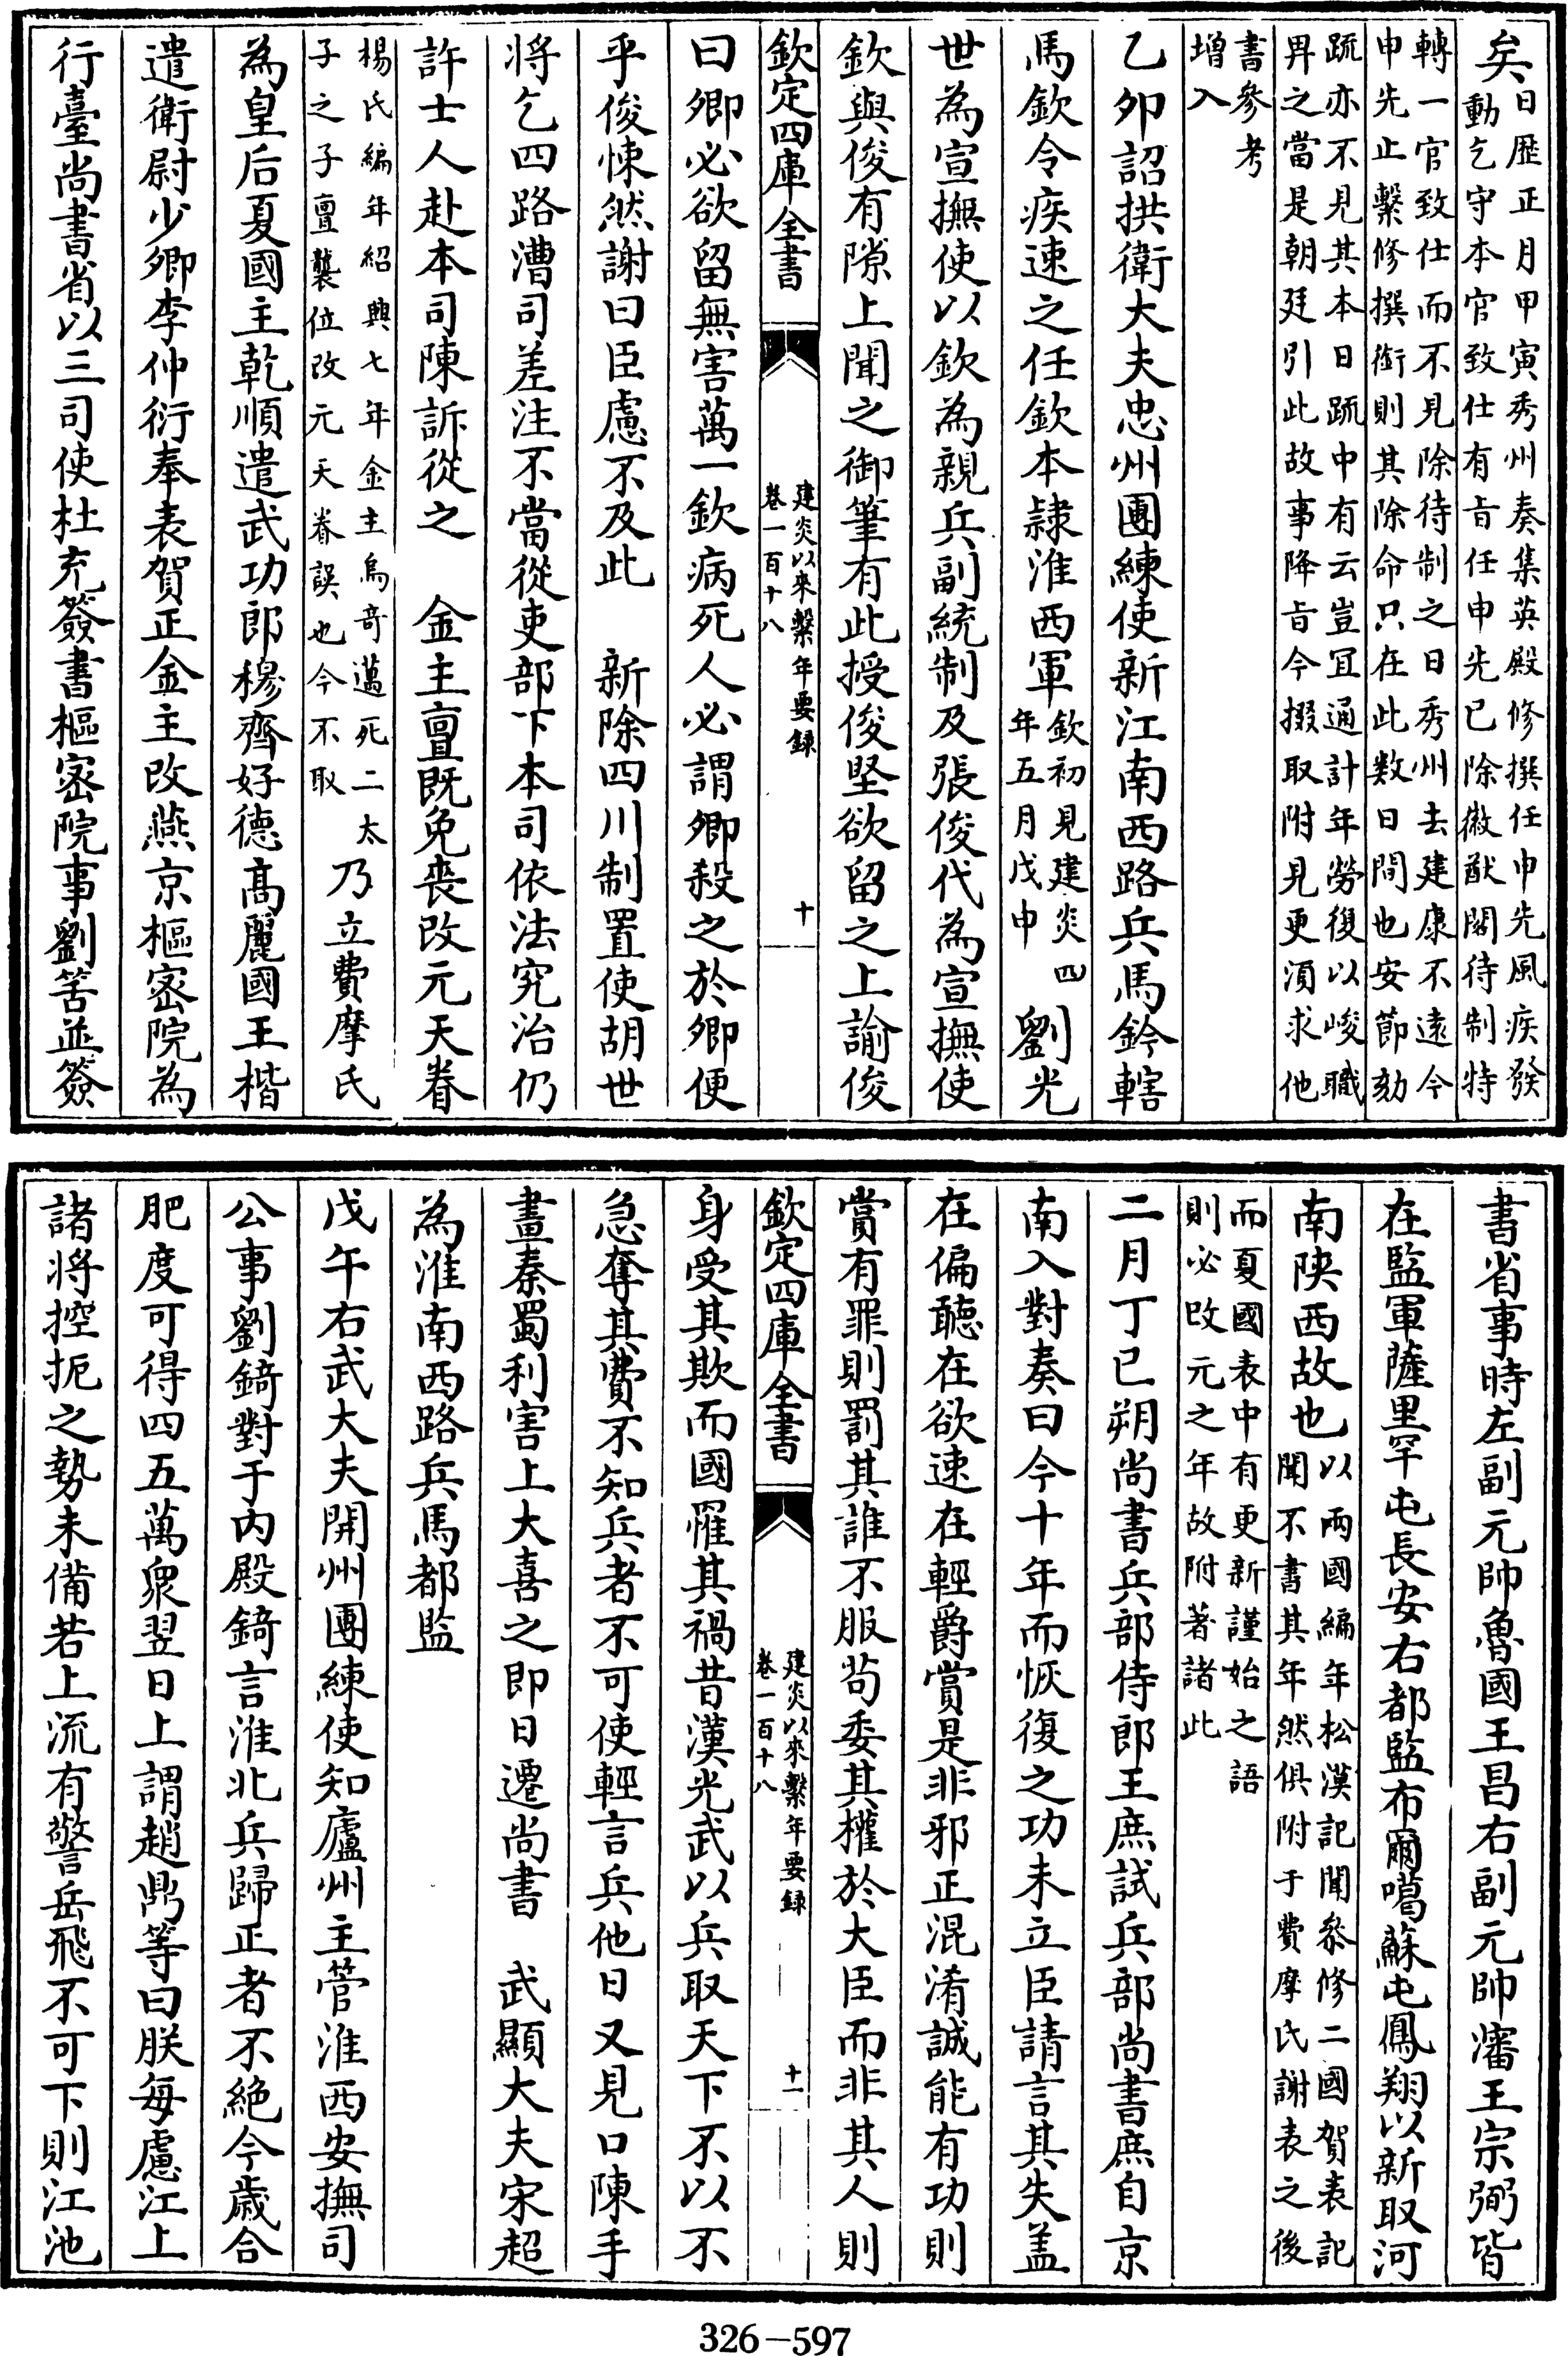 矣日歴正月甲寅秀州奏集英殿修撰任申先風疾發
動乞守本官致仕有㫖任申先已除徽猷閣待制特
轉一官致仕而不見除待制之日秀州去建康不遠今
申先止繫修撰銜則其除命只在此數日間也安節劾
疏亦不見其本日疏中有云豈宜通計年勞復以峻職
畀之當是朝廷引此故事降㫖今掇取附見更湏求他
書參考
增入
乙夘詔拱衛大夫忠州團練使新江南西路兵馬鈐轄
馬欽令疾速之任欽本隷淮西軍欽初見建炎四
年五月戊申劉光
世為宣撫使以欽為親兵副統制及張俊代為宣撫使
欽與俊有隙上聞之御筆有此授俊堅欲留之上諭俊
欽定四庫全書
建炎以來繫年要録
卷一百十八
十
曰卿必欲留無害萬一欽病死人必謂卿殺之於卿便
乎俊悚然謝曰臣慮不及此　新除四川制置使胡世
将乞四路漕司差注不當從吏部下本司依法究治仍
許士人赴本司陳訴從之　金主亶既免喪改元天眷
楊氏編年紹興七年金主烏竒邁死二太
子之子亶襲位改元天眷誤也今不取乃立費摩氏
為皇后夏國主乾順遣武功郎穆齊好德髙麗國王楷
遣衛尉少卿李仲衍奉表賀正金主改燕京樞密院為
行臺尚書省以三司使杜充簽書樞密院事劉筈並簽
書省事時左副元帥魯國王昌右副元帥瀋王宗弼皆
在監軍薩里罕屯長安右都監布爾噶蘇屯鳳翔以新取河
南陝西故也以兩國編年松漠記聞叅修二國賀表記
聞不書其年然俱附于費摩氏謝表之後
而夏國表中有更新謹始之語
則必改元之年故附著諸此
二月丁巳朔尚書兵部侍郎王庶試兵部尚書庶自京
南入對奏曰今十年而恢復之功未立臣請言其失盖
在偏聽在欲速在輕爵賞是非邪正混淆誠能有功則
賞有罪則罰其誰不服茍委其權於大臣而非其人則
欽定四庫全書
建炎以來繫年要録
卷一百十八
十一
身受其欺而國罹其禍昔漢光武以兵取天下不以不
急奪其費不知兵者不可使輕言兵他日又見口陳手
畫秦蜀利害上大喜之即日遷尚書　武顯大夫宋超
為淮南西路兵馬都監
戊午右武大夫開州團練使知廬州主管淮西安撫司
公事劉錡對于内殿錡言淮北兵歸正者不絶今歳合
肥度可得四五萬衆翌日上謂趙鼎等曰朕每慮江上
諸将控扼之勢未備若上流有警岳飛不可下則江池
326—597